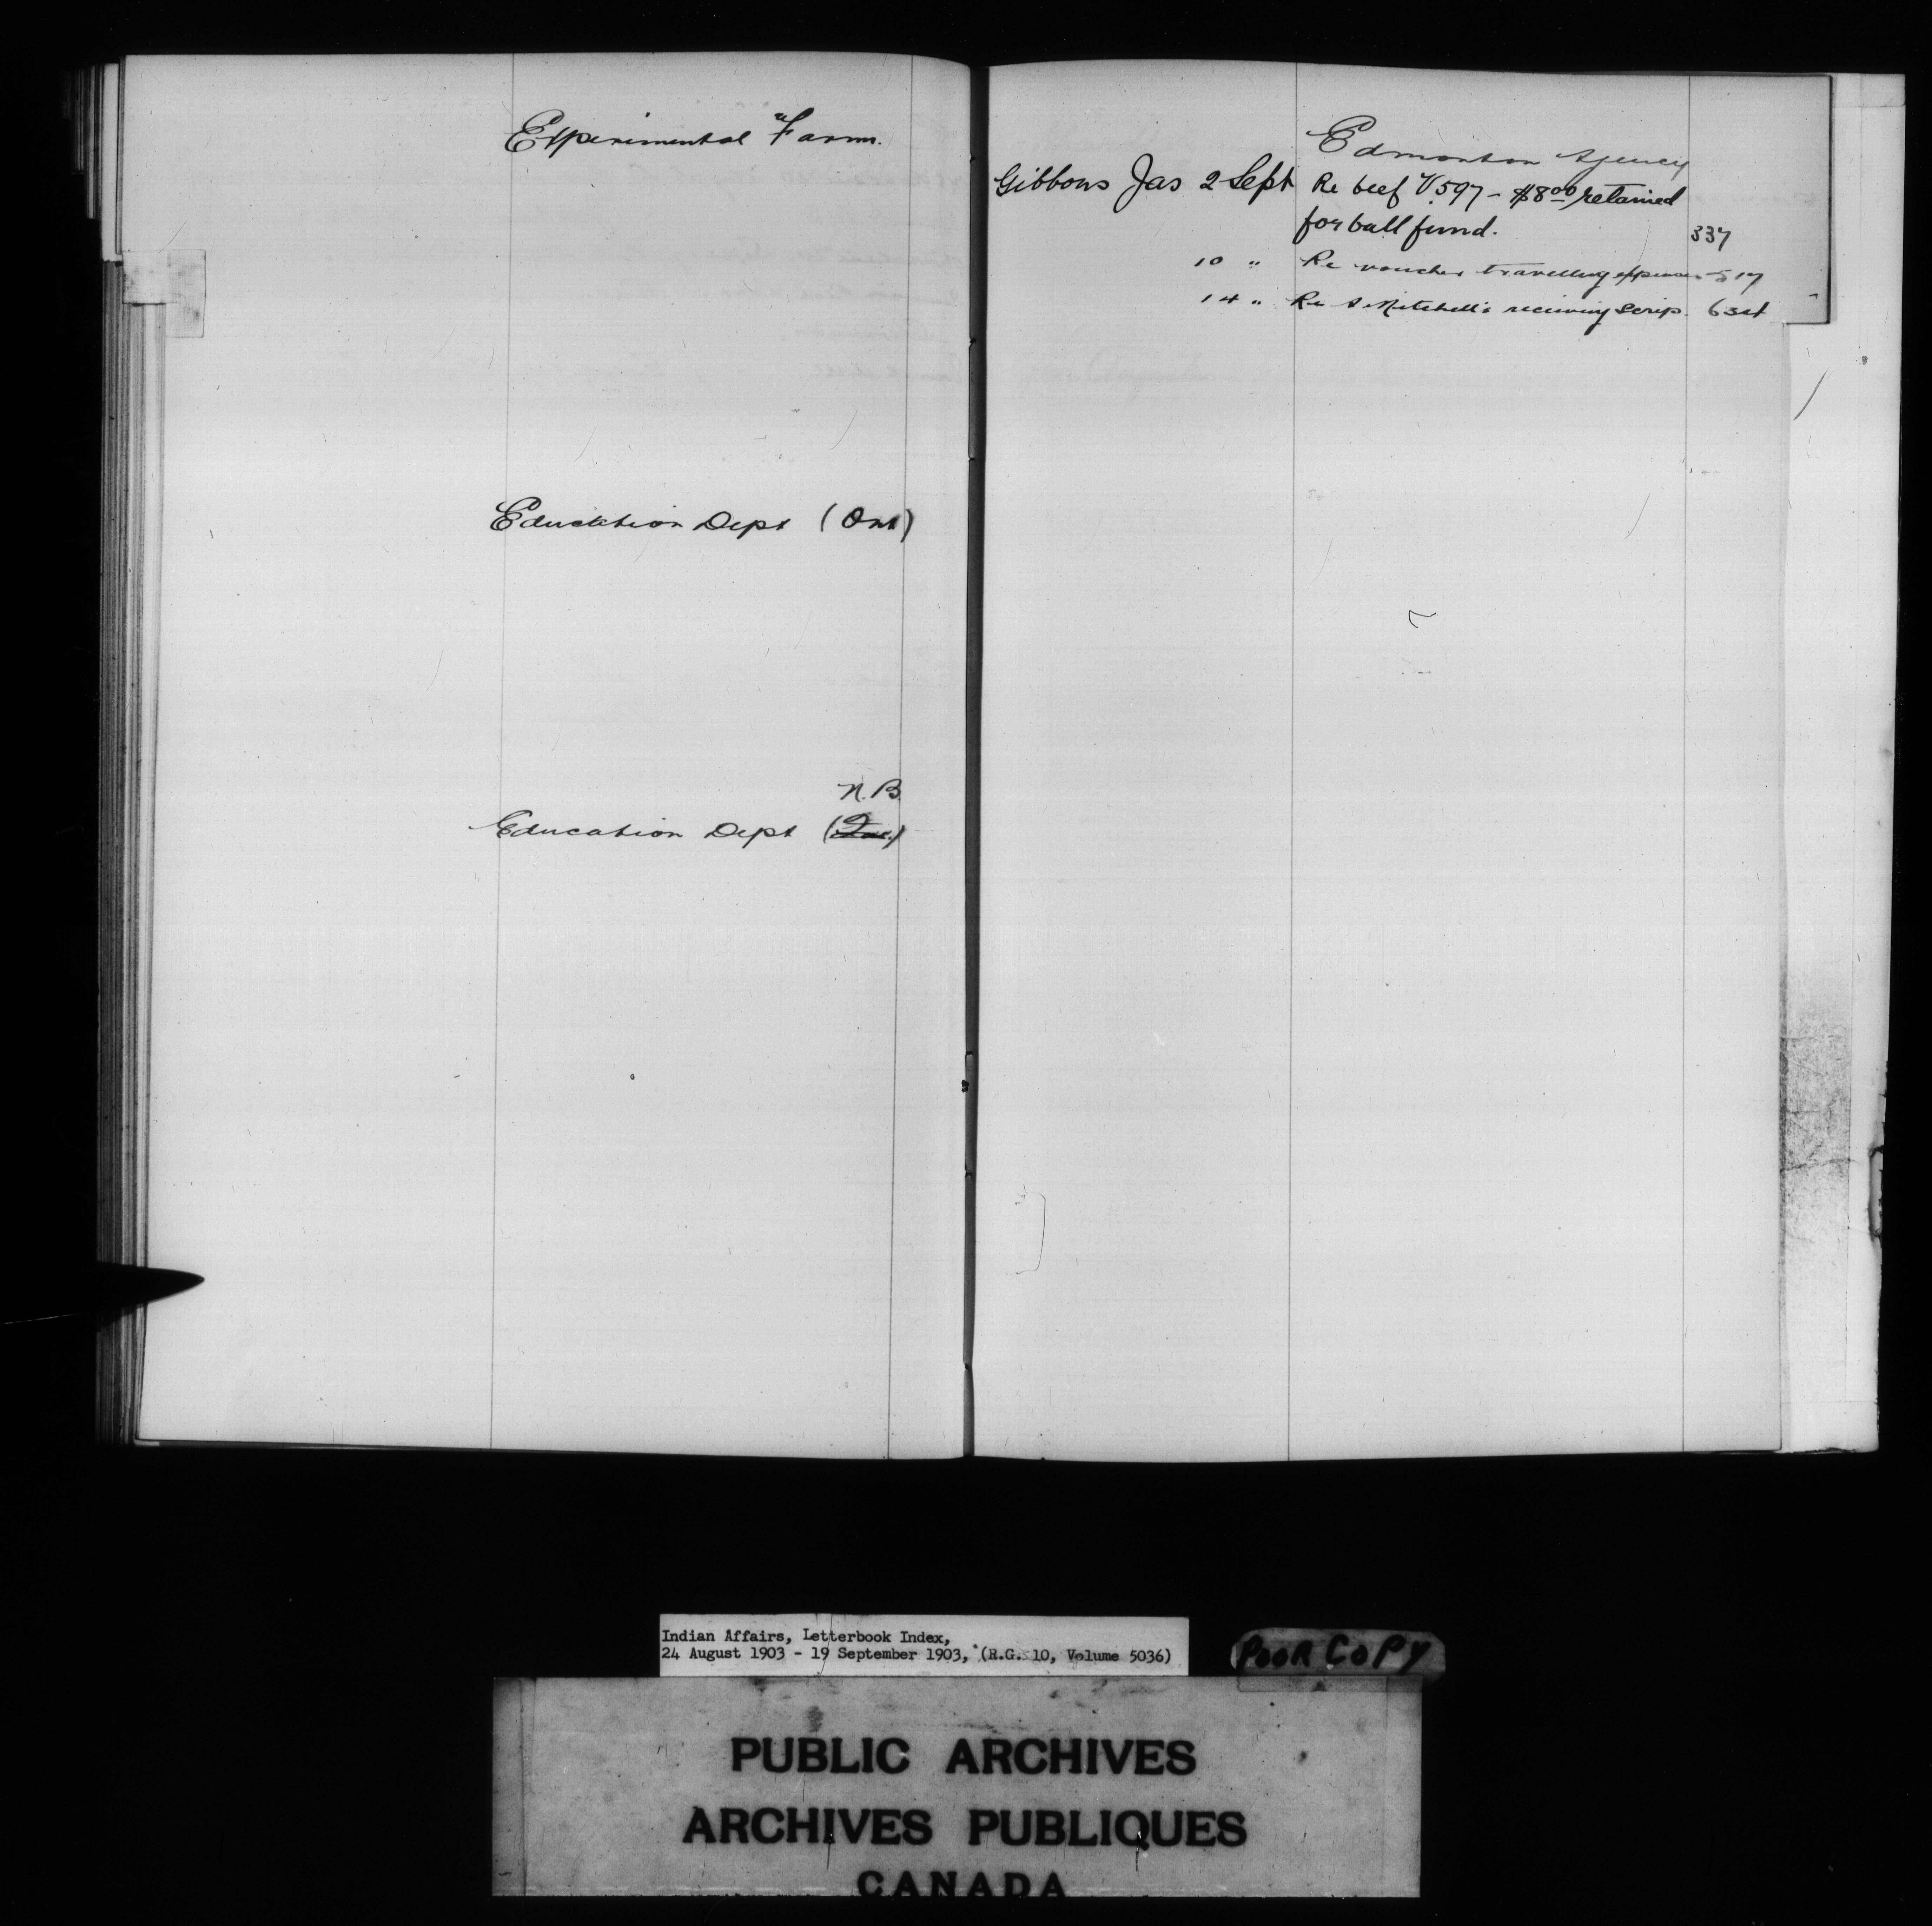 Experimental Farm.
Education Dept (Ont)
N.B.
Education Dept (Que.)
Edmonton Agency
Gibbons Jas 2 Sept Re beef V.597 - $8.00 retained
for ball fund. 337
10 " Re voucher travelling expenses 517
14 " Re Mitchell's receiving Scrip.
Indian Affairs, Letterbook Index,
24 August 1903 - 19 September 1903, (R.G. 10, Volume 5036)
POOR COPY
PUBLIC ARCHIVES
ARCHIVES PUBLIQUES
CANADA